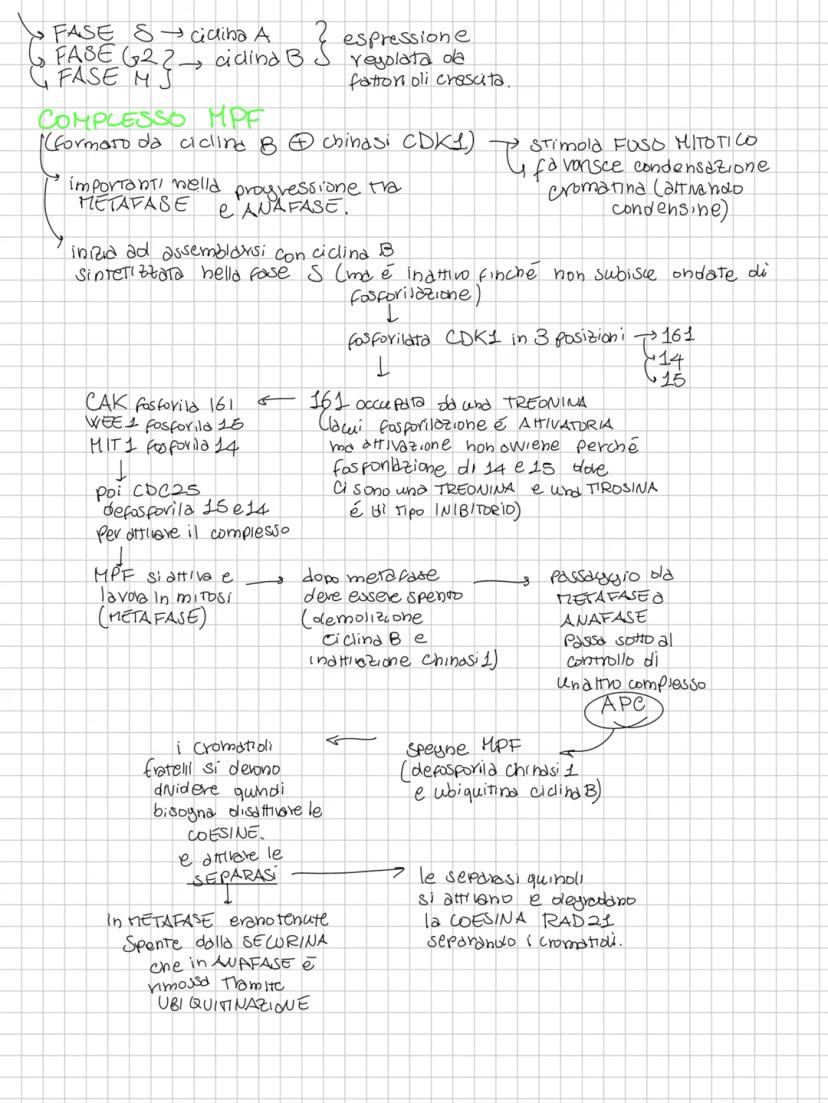 FASE S → ciclina A
FASE G2 → ciclina B
FASE M
espressione
regolata da
fattori di crescita.
COMPLESSO MPF
(formato da ciclina B + chinasi CDK1) → stimola FUSO MITOTICO
favorisce condensazione
cromatina (attivando
condensine)
importanti nella progressione tra
METAFASE e ANAFASE.
inizia ad assemblarsi con ciclina B
sintetizzata nella fase S (ma é inattivo finché non subisce ondate di
fosforilazione)
↓
fosforilata CDK1 in 3 posizioni → 161
14
15
↓
161 occupata da una TREONINA
(la cui fosforilazione é ATTIVATORIA
ma attivazione non avviene perché
fosforilazione di 14 e 15 dove
ci sono una TREONINA e una TIROSINA
é di tipo INIBITORIO)
←
CAK fosforila 161
WEE1 fosforila 15
MIT1 fosforila 14
↓
poi CDC25
defosforila 15 e 14
per attivare il complesso
↓
MPF si attiva e
lavora in mitosi
(METAFASE)
→
dopo metafase
deve essere spento
(demolizione
ciclina B e
inattivazione chinasi 1)
→
passaggio da
METAFASE a
ANAFASE
passa sotto al
controllo di
un altro complesso
APC
spegne MPF
(defosforila chinasi 1
e ubiquitina ciclina B)
←
i cromatidi
fratelli si devono
dividere quindi
bisogna disattivare le
COESINE.
e attivare le
SEPARASI
↓
in METAFASE erano tenute
spente dalla SECURINA
che in ANAFASE é
rimossa tramite
UBIQUITINAZIONE
→
le separasi quindi
si attivano e degradano
la COESINA RAD21
separando i cromatidi.